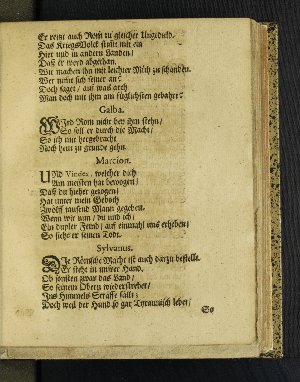 Er reitzt auch Rom zu gleicher Ungeduld.
Das Kriegs Volck stimt mit ein
Hier und in andern Landen/
Daß er werd abgethan.
Wir machen ihn mit leichter Müh zu schanden.
Wer nimt sich seiner an?
Doch saget/ auf waß arth
Man doch mit ihm am füglichsten gebahrt?
Galba.
WIrd Rom nicht bey ihm stehn/
So soll er durch die Macht/
So ich mit hergebracht
Noch heut zu grunde gehn.
Marcion.
UND Vindex, welcher dich
Am meisten hat bewogen/
Daß du hieher gezogen;
Hat unter mein Geboth
Zwölff tausend Mann gegeben.
Wenn wir nun/ du und ich/
Ein dupler Feind/ auf einmahl uns erheben;
So siehet er seinen Todt.
Sylvanus.
DIe Römsche Macht ist auch darzu bestellt.
Er steht in unsrer Hand.
Ob sonsten zwar das Land/
So seinem Obern wiederstrebet/
Ins Himmels Straffe fällt;
Doch weil der Hund so gar Tyrannisch lebet/
So